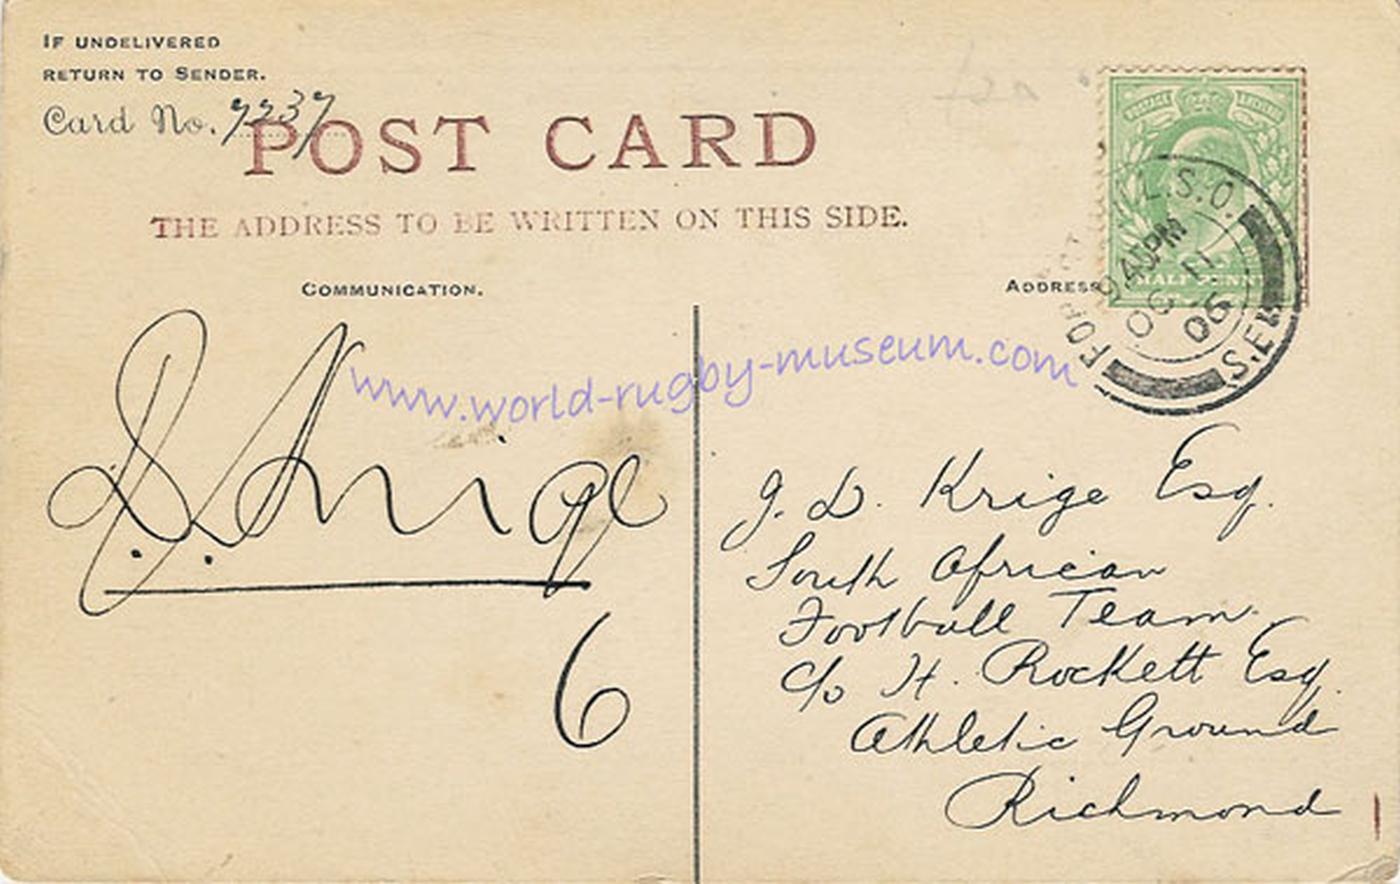 IF UNDELIVERED
RETURN TO SENDER.
Card No. 7237
POST CARD
THE ADDRESS TO BE WRITTEN ON THIS SIDE.
COMMUNICATION.
ADDRESS
HALF PENNY
L.S.O.
9 45PM
OC 11
06
S.E.
www.world-rugby-museum.com
J. D. Krige
6
J. D. Krige Esq.
South African
Football Team
c/o H. Rockett Esq.
Athletic Ground
Richmond